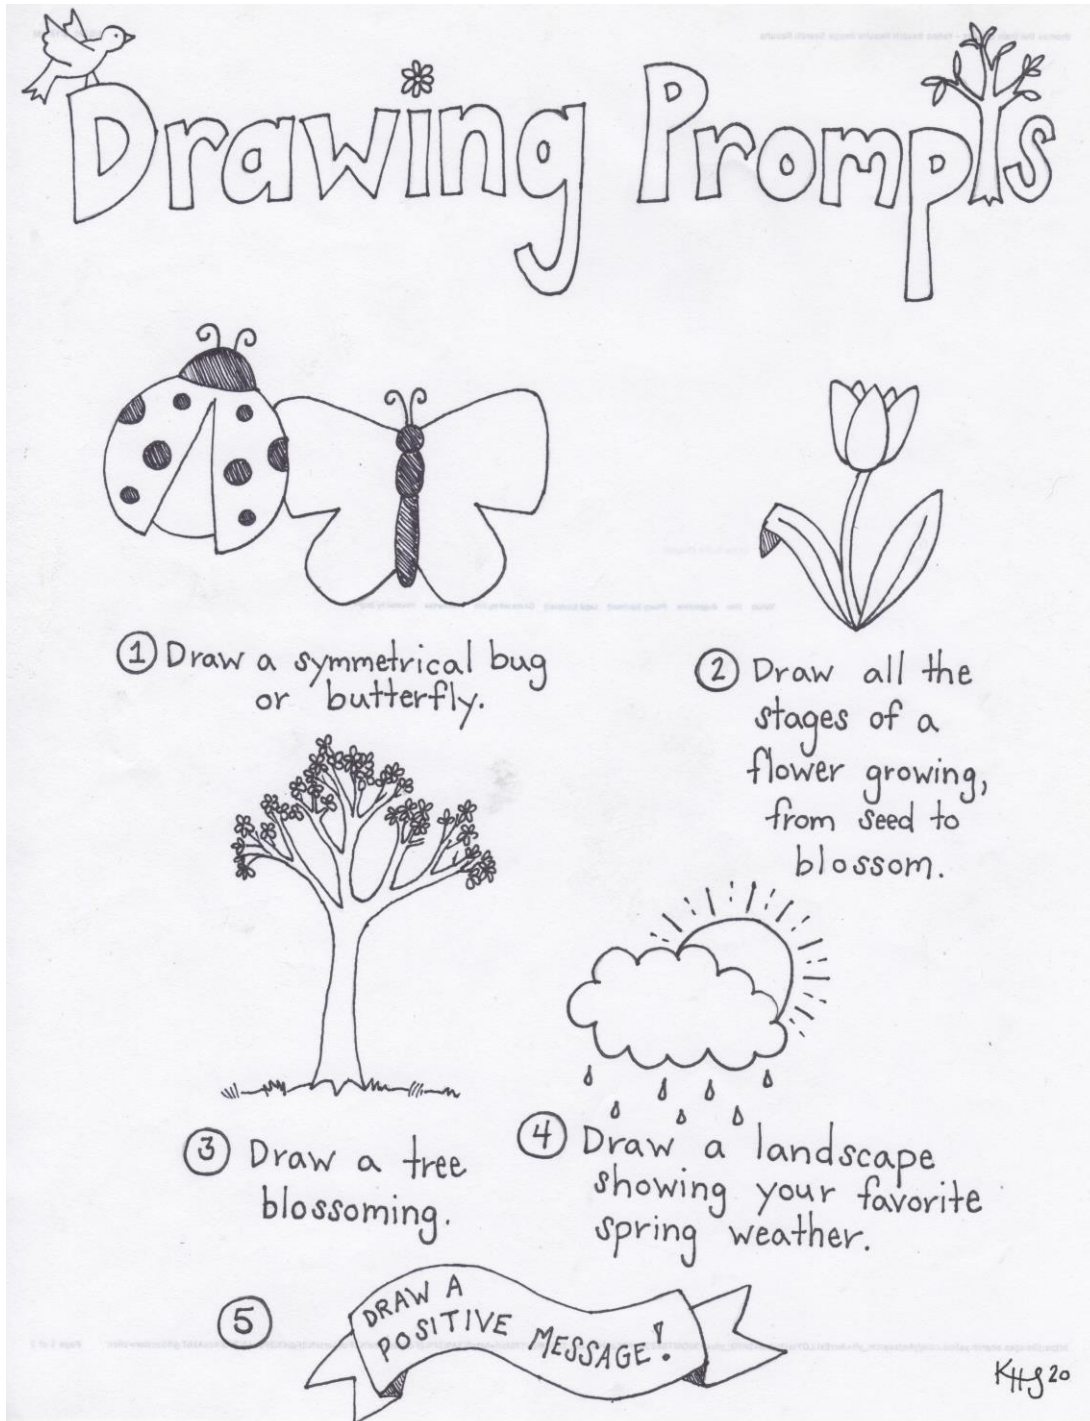 Drawing Prompts
① Draw a symmetrical bug
or butterfly.
② Draw all the
stages of a
flower growing,
from seed to
blossom.
③ Draw a tree
blossoming.
④ Draw a landscape
showing your favorite
spring weather.
⑤ DRAW A
POSITIVE MESSAGE!
KHS 20